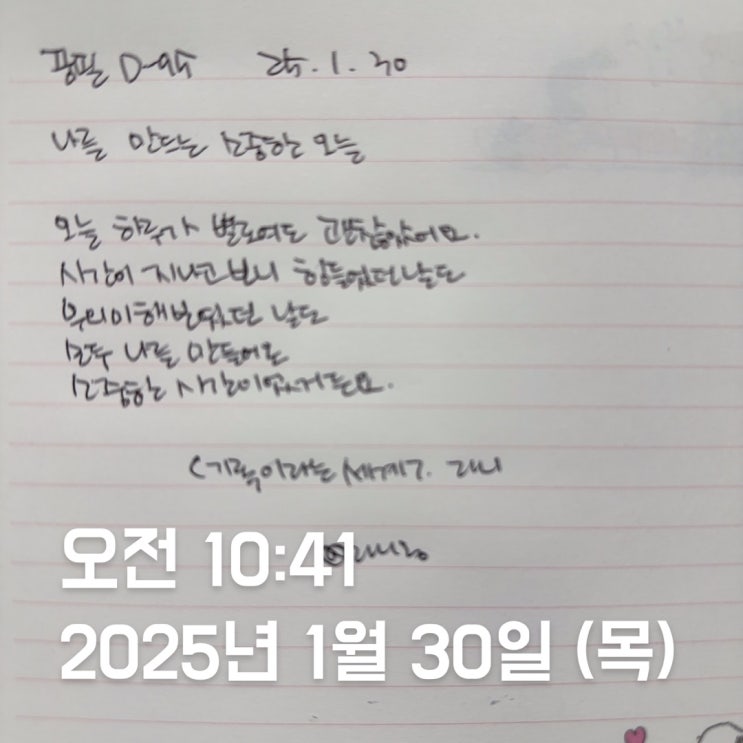 25. 1. 30
나를 만드는 소중한 오늘
오늘 하루가 별로여도 괜찮았어요.
시간이 지나고보니 힘들었던날도
무의미해보였던 날도
모두 나를 만들어온
소중한 시간이었거든요.
<기록이라는 세계>. 리니
오전 10:41
2025년 1월 30일 (목)